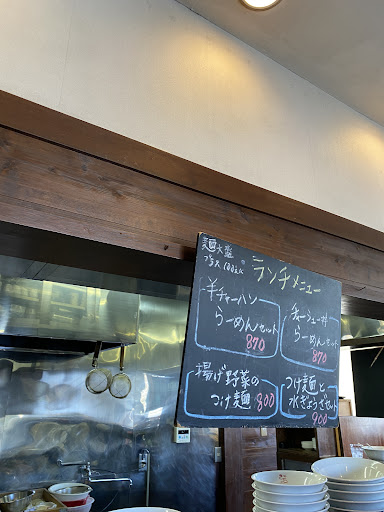 麺大盛
ランチメニュー
半チャーハン
らーめんセット
870
チャーシュー丼
らーめんセット
870
揚げ野菜の
つけ麺 800
つけ麺と
水ぎょうざセット
900